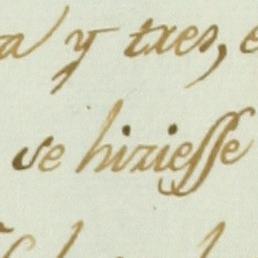 a y tres,
se hiziesse